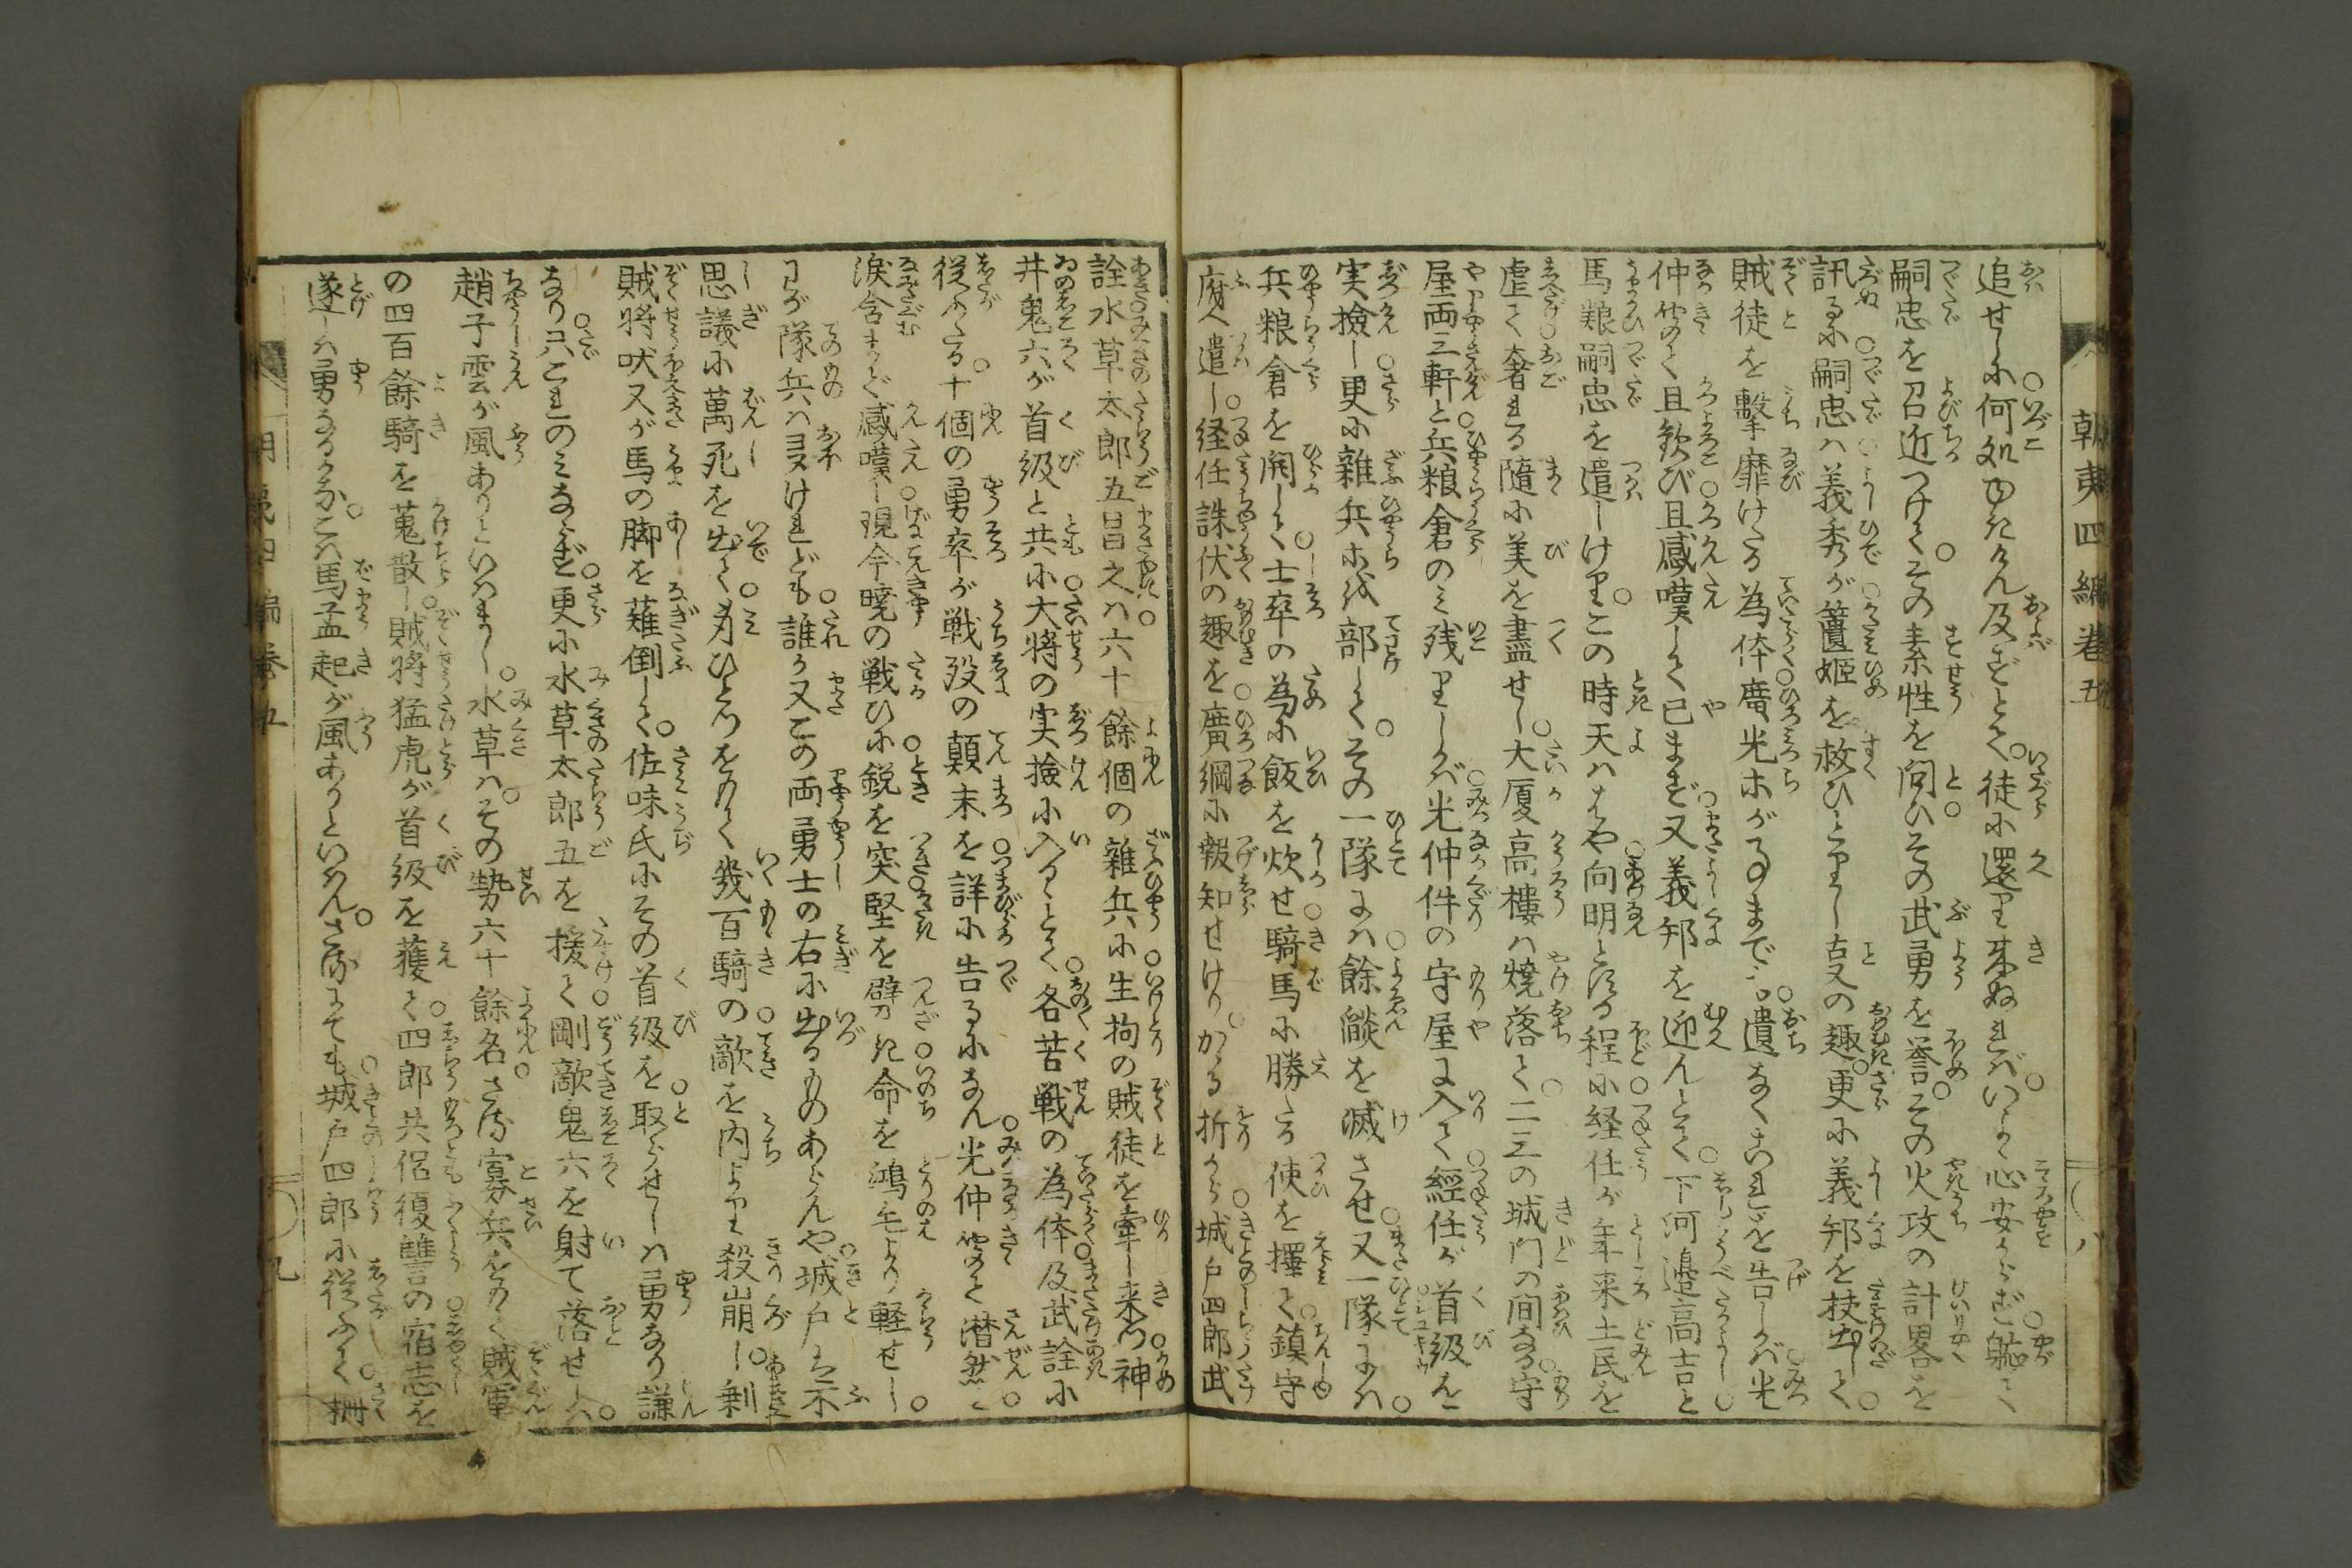 朝夷四編卷五
追せしに何処ゆきけん及ずとて。徒に還り来ぬればいよゝ心安からず馳て
嗣忠を召近つけてその素性を問ひその武勇を誉。その火攻の計畧を
訊るに嗣忠は義秀が
姫を救ひとりし古又の趣。更に義邦を扶出して
賊徒を撃靡けたる為体廣光ホが事まで。遺なくこれを告しかば光
仲竊て且歓び且感嘆して已まず又義邦を迎んとて。下河邉高吉と
馬粮嗣忠を遣しけり。この時天ははや向明とする程に経任が年来土民を
虐て奢れる隨に美を盡せし。大厦高樓は燒落て二三の城門の間なる守
屋両三軒と兵粮倉のみ残りしかば光仲件の守屋に入て經任が首級を
実撿し更に雜兵ホを部して。その一隊には餘燄を滅させ又一隊には。
兵粮倉を開して士卒の為に飯を炊せ騎馬に勝たる使を擇て鎮守
府へ遣し。経任誅伏の趣を廣綱に報知せけり。かゝる折から城戸四郎武
八
詮水草太郎五昌之は六十餘個の雜兵に生拘の賊徒を牽し来つ神
井鬼六が首級と共に大将の実撿に入るゝとて各苦戦の為体及武詮に
從ふたる十個の勇卒が戦歿の顛末を詳に告るになん光仲
潜然と
涙含までぐ感嘆し現今暁の戦ひに鋭を突堅を劈き命を鴻毛より軽せし
わが隊兵は多けれども誰か又この両勇士の右に出るものあらんや。城戸は不
思議に萬死を出て身ひとつをもて幾百騎の敵を内より殺崩し。剰
賊将吠又が馬の脚を薙倒して。佐味氏にその首級を取らせしは勇なり謙
なり只これのみならず。更に水草太郎五を援て剛敵鬼六を射て落せしは。
趙子雲が風ありといはまし。水草は。その勢六十餘名。さる寡兵をもて賊軍
の四百餘騎を蒐散し。賊将猛虎が首級を獲て。四郎共侶復讐の宿志を
遂しは勇なるかな。こは馬孟起が風ありといはん。さるにても城戸四郎に從ふて柵
朝夷四編卷五
九